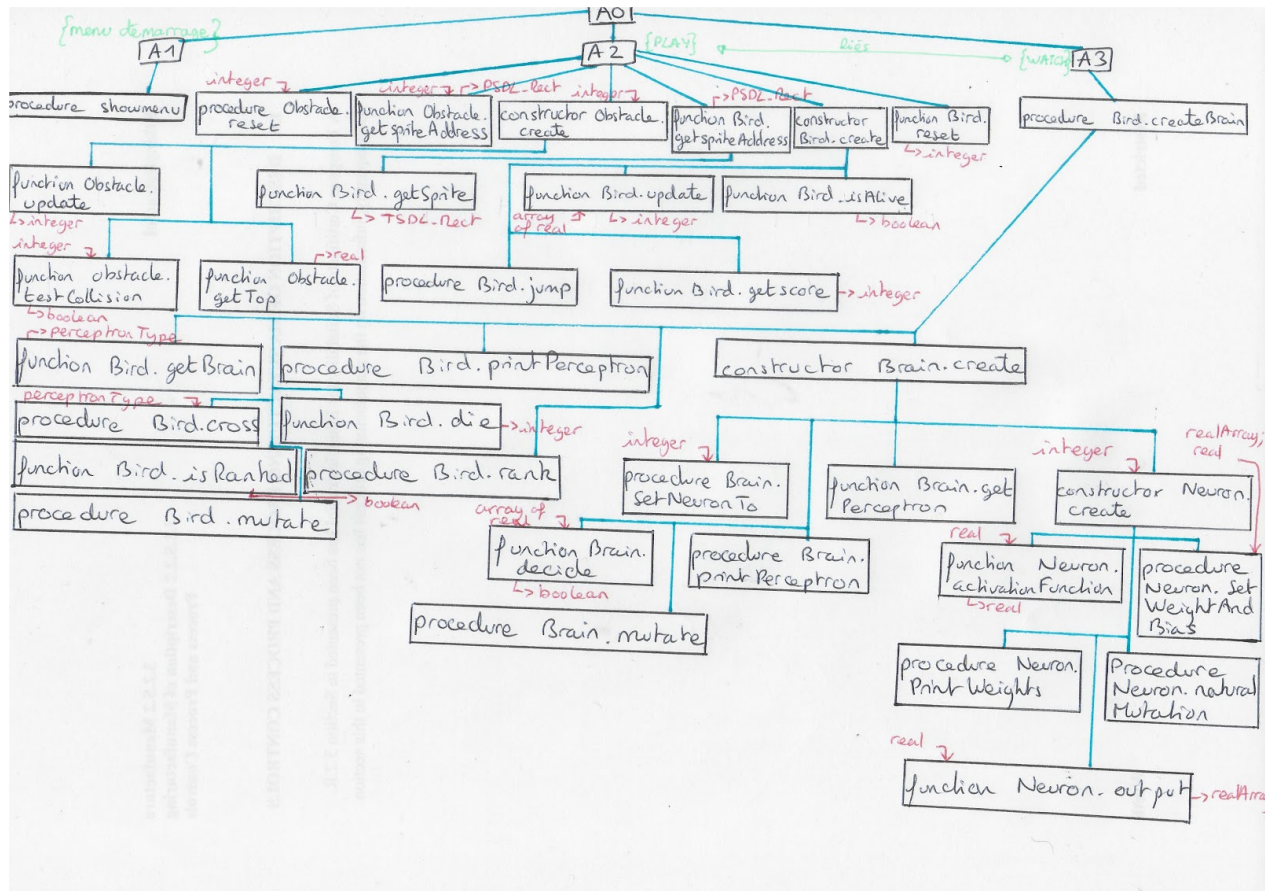 A0
{menu démarrage}
A1
A2
{PLAY}
liés
{WATCH}
A3
integer
integer
PSDL_Rect
integer
PSDL_Rect
procedure showmenu
procedure Obstacle.
reset
function Obstacle.
getspriteAddress
constructor Obstacle.
create
function Bird.
getspriteAddress
constructor
Bird.create
function Bird.
reset
integer
procedure Bird.createBrain
function Obstacle.
update
integer
function Bird.getSprite
TSDL_Rect
function Bird.update
array
of real
integer
function Bird.isAlive
boolean
integer
function obstacle.
testCollision
boolean
real
function Obstacle.
getTop
procedure Bird.jump
function Bird.getscore
integer
perceptronType
function Bird.getBrain
procedure Bird.printPerceptron
constructor Brain.create
perceptronType
procedure Bird.cross
function Bird.die
integer
function Bird.isRanked
procedure Bird.rank
boolean
procedure Bird.mutate
integer
procedure Brain.
setNeuronTo
function Brain.get
Perceptron
integer
constructor Neuron.
create
realArray,
real
array of
real
function Brain.
decide
boolean
procedure Brain.
printPerceptron
procedure Brain.mutate
real
function Neuron.
activationFunction
real
procedure
Neuron.Set
WeightAnd
Bias
procedure Neuron.
PrintWeights
Procedure
Neuron.natural
Mutation
real
function Neuron.output
realArray